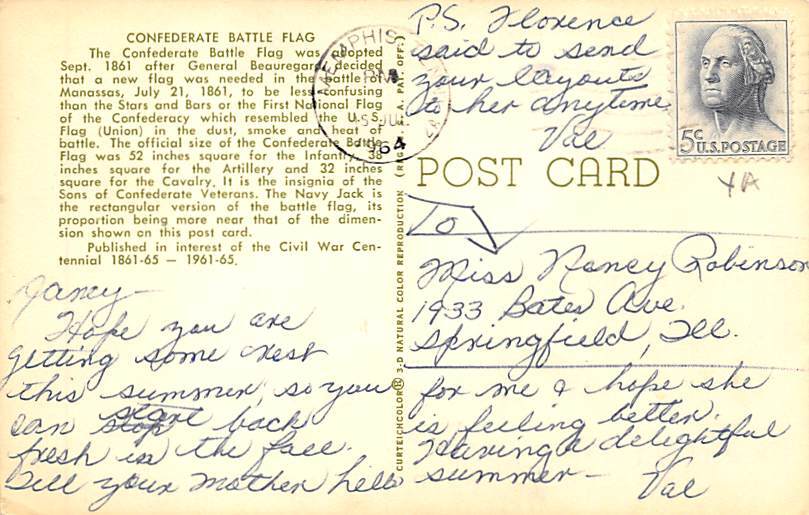 CONFEDERATE BATTLE FLAG
The Confederate Battle Flag was adopted
Sept. 1861 after General Beauregard decided
that a new flag was needed in the battle of
Manassas, July 21, 1861, to be less confusing
than the Stars and Bars or the First National Flag
of the Confederacy which resembled the U. S.
Flag (Union) in the dust, smoke and heat of
battle. The official size of the Confederate Battle
Flag was 52 inches square for the Infantry, 38
inches square for the Artillery and 32 inches
square for the Cavalry. It is the insignia of the
Sons of Confederate Veterans. The Navy Jack is
the rectangular version of the battle flag, its
proportion being more near that of the dimen-
sion shown on this post card.
Published in interest of the Civil War Cen-
tennial 1861-65 — 1961-65.
Nancy—
Hope you are
getting some rest
this summer, so you
can stop start back
fresh in the fall.
Tell your Mother hello
CURTEICHCOLOR® 3-D NATURAL COLOR REPRODUCTION (REG'D. U.S.A. PAT. OFF.)
MEMPHIS
PM
1964
P.S. Florence
said to send
your layouts
to her anytime
Val
5c
U.S. POSTAGE
YA
POST CARD
To
Miss Nancy Robinson
1933 Bates Ave.
Springfield, Ill.
for me & hope she
is feeling better.
Having a delightful
summer—
Val